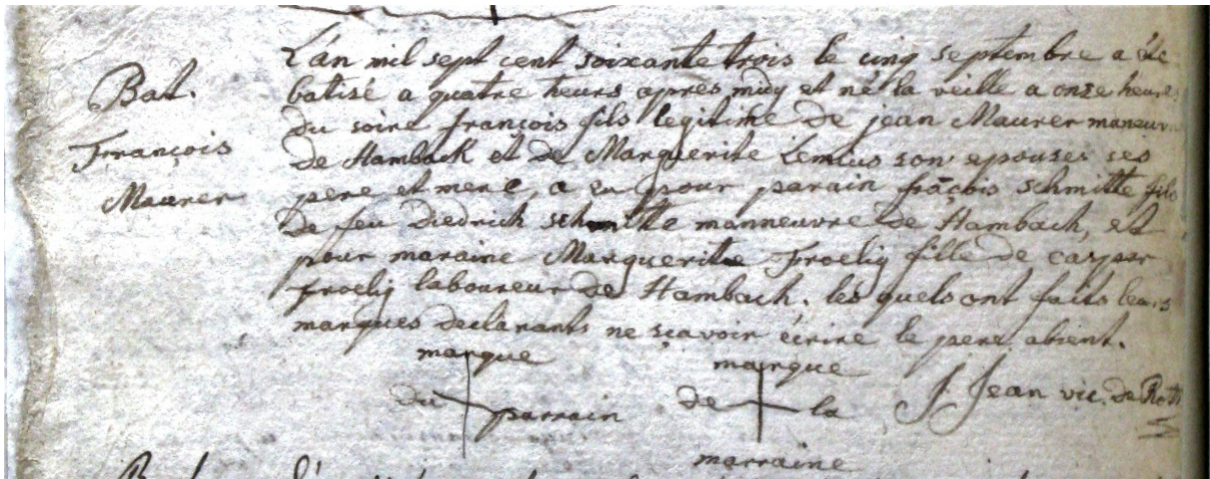 Bat.
François
Maurer
L'an mil sept cent soixante trois le cinq septembre a été
batisé a quatre heurs apres midy et né la veille a onze heures
du soire françois fils legitime de jean Maurer maneuvre
de Hambach et de Marguerite Lemius son epouse, ses
pere et mere, a eu pour parain fraçois schmitte fils
de feu Diedrich schmitte manneuvre de Hambach, et
pour maraine Marguerite Froelig fille de casper
froelig laboureur de Hambach. les quels ont faits leurs
marques declarants ne sçavoir écrire le pere absent.
marque
du parrain
marque
de la
marraine
J. Jean vic. de Roth